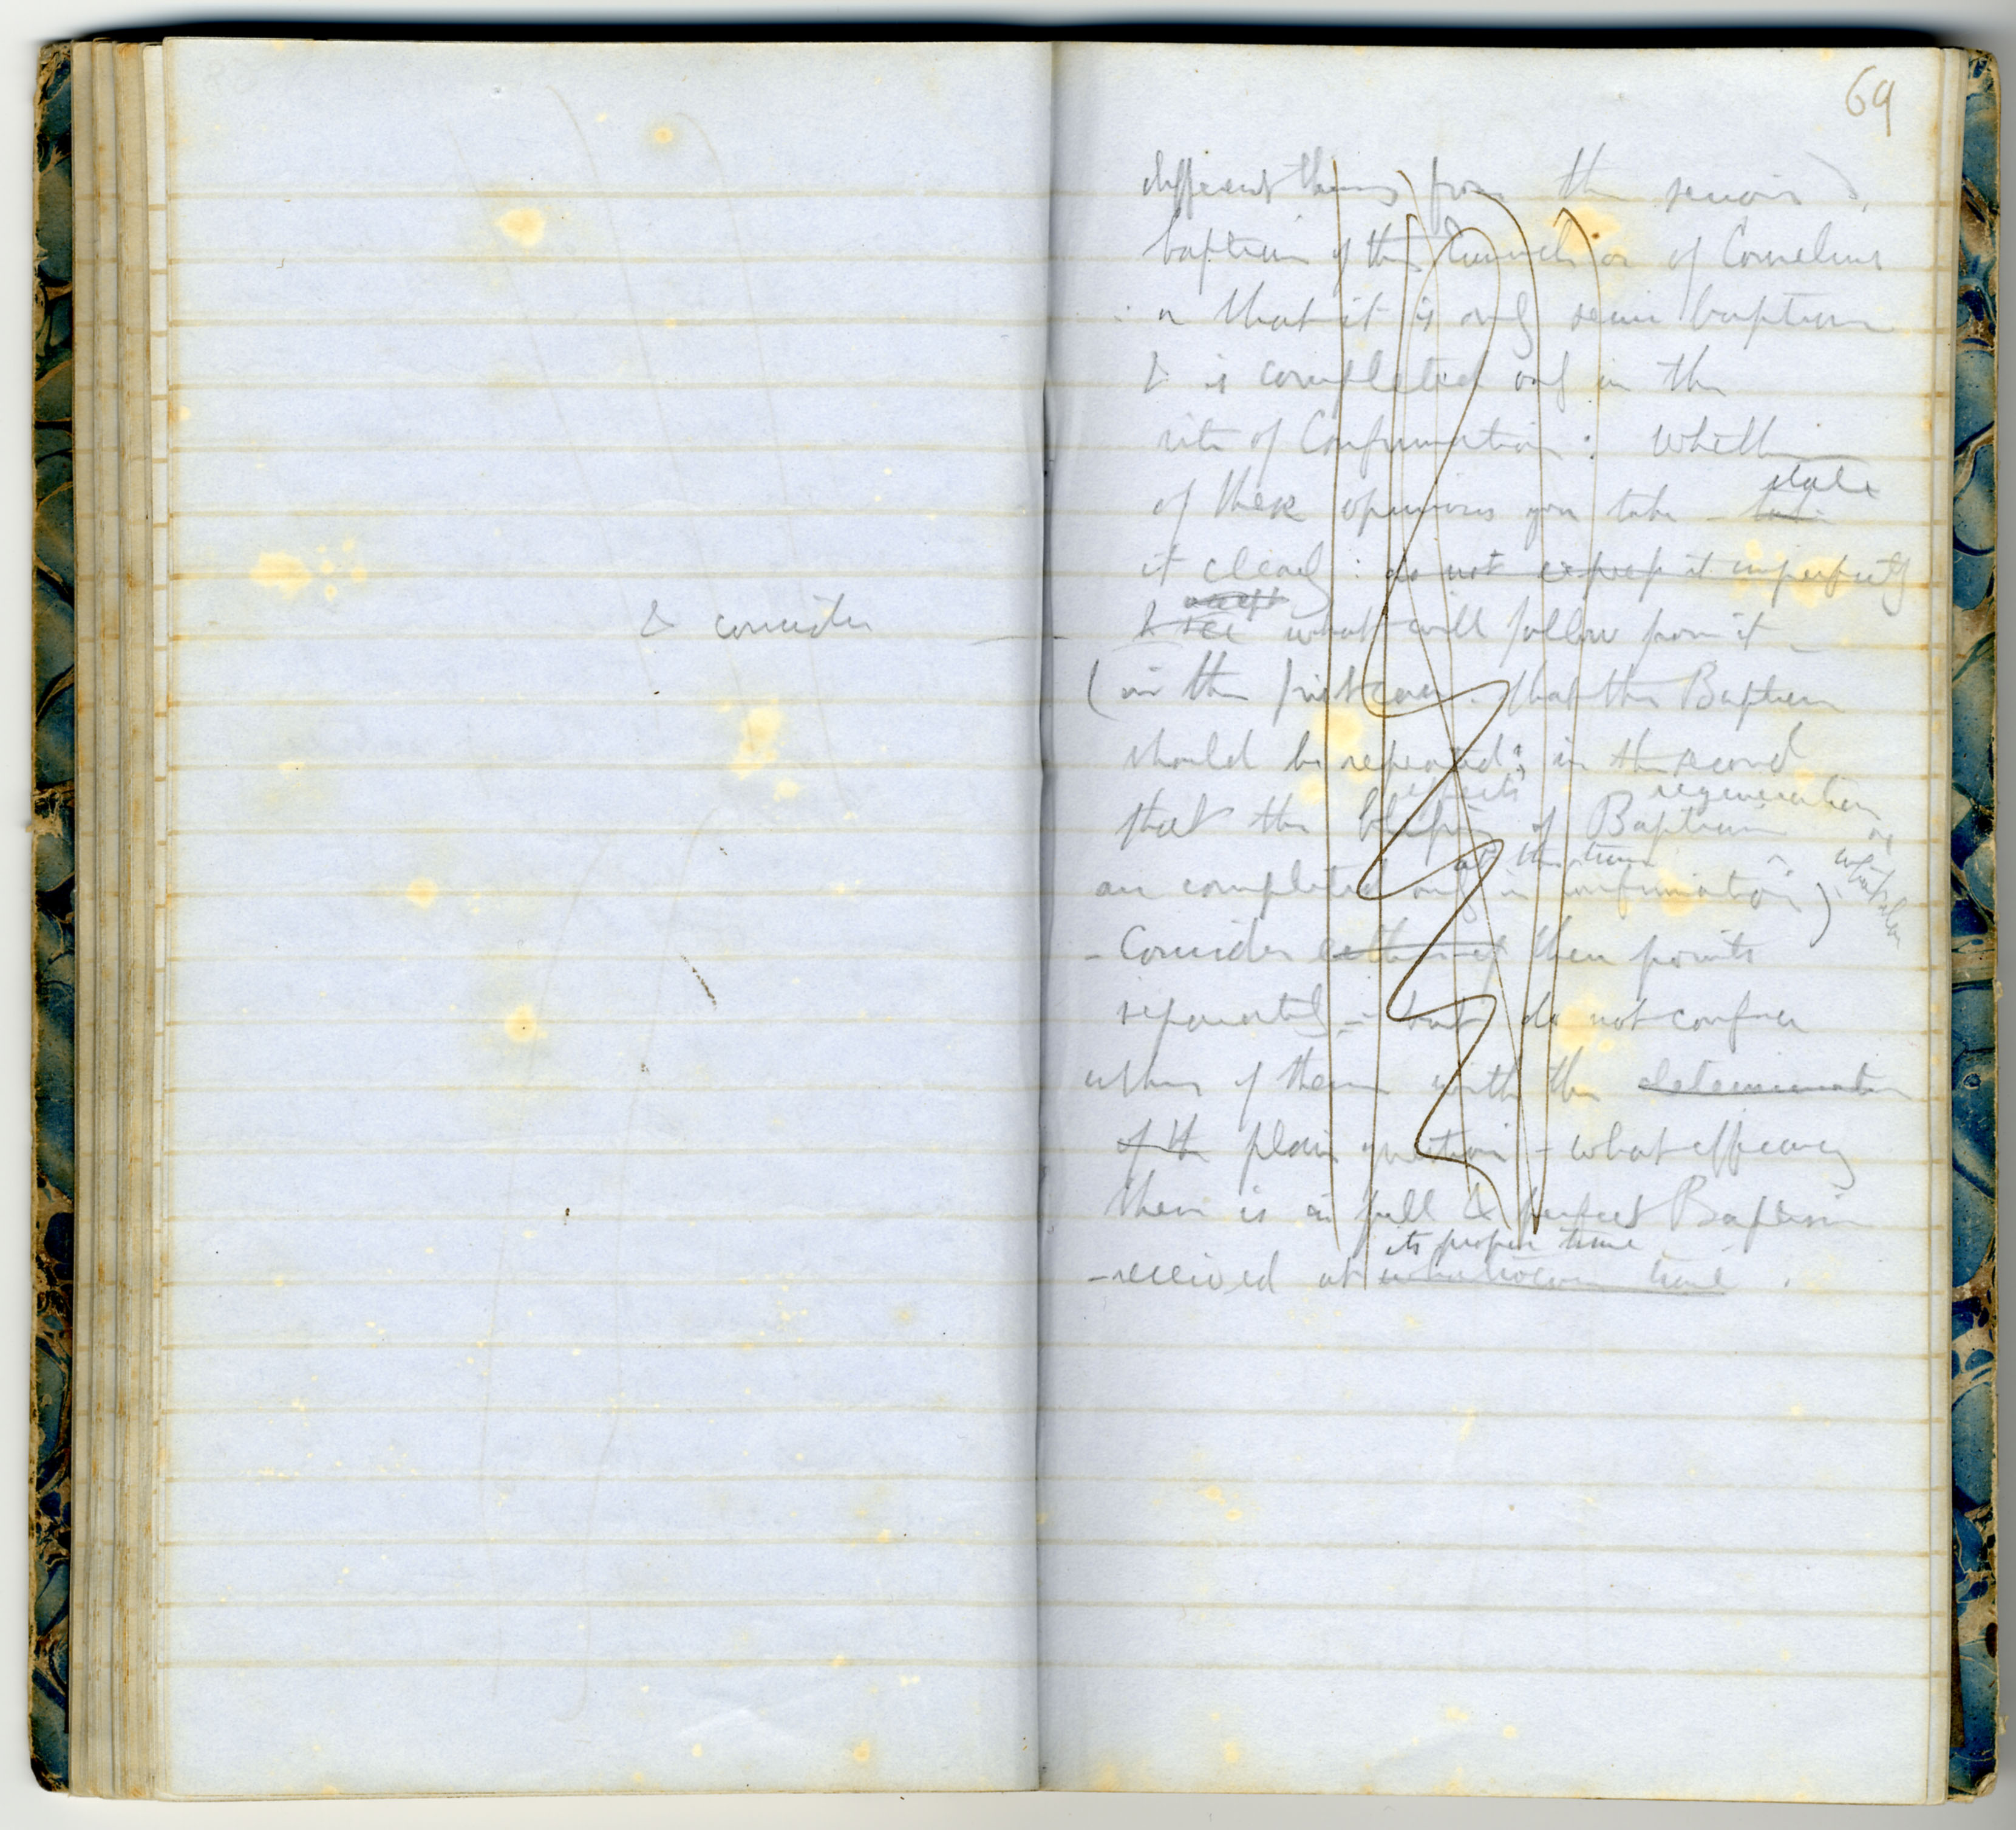 & consider
69
different thing from the
baptism of the Eunuch or of Cornelius
or that it is only semi baptism
& is completed only in the
rite of Confirmation: whether
of these opinions you take - state
it clearly: do not express it imperfectly
accept
& see what will follow from it -
(in the first case. that the Baptism
should be repeated; in the second
effects regeneration or
that the blessings of Baptism
at the time what else
are completed only in confirmation)
- Consider either of them points
separately - but do not confuse
either of them with the determination
of the plain question - what efficacy
there is in full & perfect Baptism
its proper time
- received at whatsoever time.